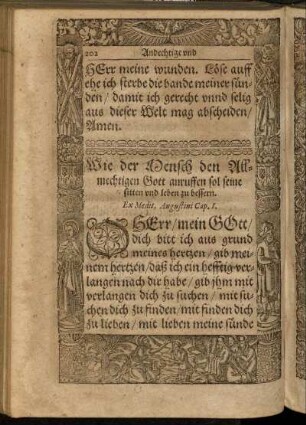 202
Andechtige vnd
HErr meine wunden. Löse auff
ehe ich sterbe die bande meiner sün-
den / damit ich gerecht vnnd selig
aus dieser Welt mag abscheiden /
Amen.
Wie der Mensch den All-
mechtigen Gott anruffen sol seine
sitten vnd leben zu bessern.
Ex Medit. Augustini Cap. I.
O HErr / mein GOtt /
dich bitt ich aus grund
meines hertzen / gib mei-
nem hertzen / daß ich ein hefftig ver-
langen nach dir habe / gib jhm mit
verlangen dich zu suchen / mit su-
chen dich zu finden / mit finden dich
zu lieben / mit lieben meine sünde